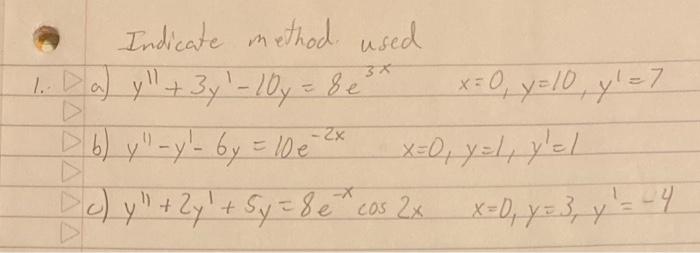 Indicate method used
1. a) y'' + 3y' - 10y = 8e^{3x} x=0, y=10, y'=7
b) y'' - y' - 6y = 10e^{-2x} x=0, y=1, y'=1
c) y'' + 2y' + 5y = 8e^{-x} cos 2x x=0, y=3, y'=-4